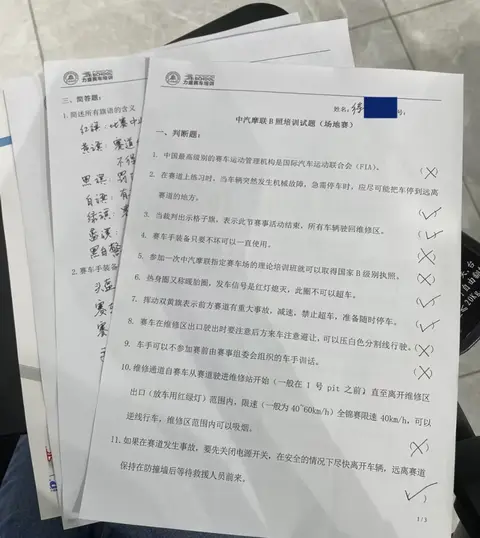 力盛赛车培训
三、简答题：
1. 简述所有旗语的含义
红旗：比赛中
黄旗：赛道
不得
黑旗：
白旗：有
绿旗：
蓝旗：
2. 赛车手装备
头盔
赛车
赛
力盛赛车培训
姓名：
号：
中汽摩联 B 照培训试题（场地赛）
一、判断题：
1. 中国最高级别的赛车运动管理机构是国际汽车运动联合会（FIA）。 (×)
2. 在赛道上练习时，当车辆突然发生机械故障，急需停车时，应尽可能把车停到远离
赛道的地方。 (✓)
3. 当裁判出示格子旗，表示此节赛事活动结束，所有车辆驶回维修区。 (✓)
4. 赛车手装备只要不坏可以一直使用。 (×)
5. 参加一次中汽摩联指定赛车场的理论培训班就可以取得国家 B 级别执照。 (×)
6. 热身圈又称暖胎圈，发车信号是红灯熄灭，此圈不可以超车。 (×)
7. 挥动双黄旗表示前方赛道有重大事故，减速，禁止超车，准备随时停车。 (✓)
8. 赛车在维修区出口驶出时要注意后方来车注意避让，可以压白色分割线行驶。 (×)
9. 车手可以不参加赛前由赛事组委会组织的车手训话。 (×)
10. 维修通道自赛车从赛道驶进维修站开始（一般在 1 号 pit 之前）直至离开维修区
出口（放车用红绿灯）范围内，限速（一般为 40~60km/h）全锦赛限速 40km/h，可以
逆线行车，维修区范围内可以吸烟。 (×)
11. 如果在赛道发生事故，要先关闭电源开关，在安全的情况下尽快离开车辆，远离赛道
保持在防撞墙后等待救援人员前来。 (✓)
1/3